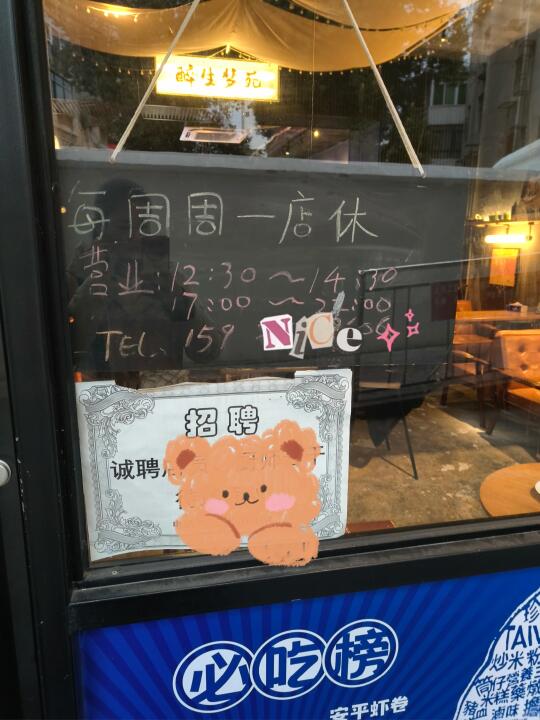 醉生梦苑
每周周一店休
营业:12:30～14:30
17:00～2
TEL. 159
Nice
招聘
诚聘
必吃榜
安平虾卷
TAIW
炒米粉